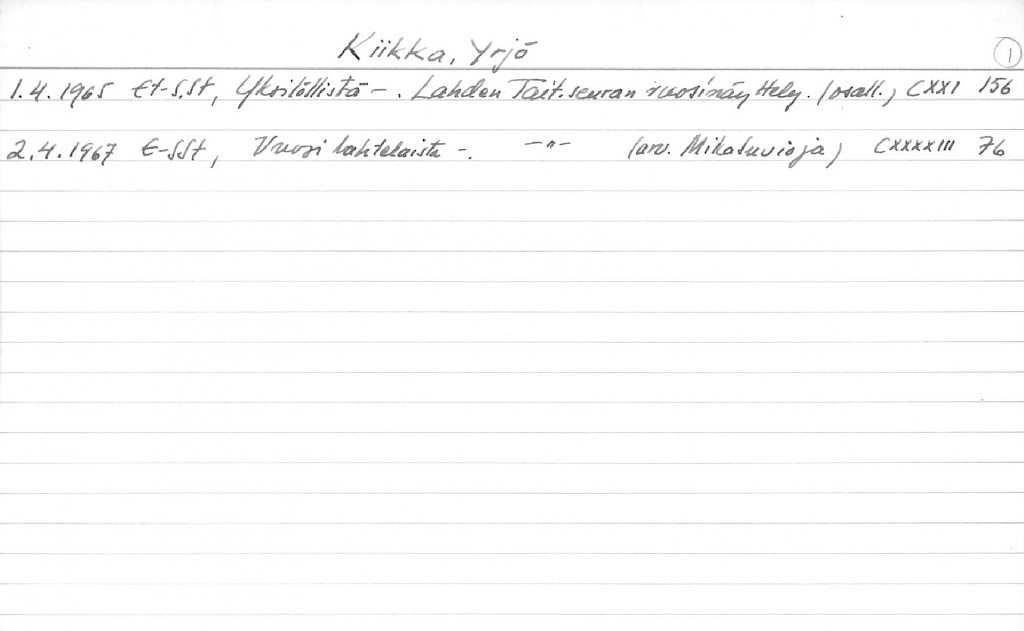 Kiikka, Yrjö 1
1.4.1965 Et-S.St, Yksilöllistä - . Lahden Tait.seuran vuosinäyttely. (osall.) CXXI 156
2.4.1967 E-SSt, Vuosi lahtelaista -. -"- (arv. Mikohuvioja) CXXXXIII 76